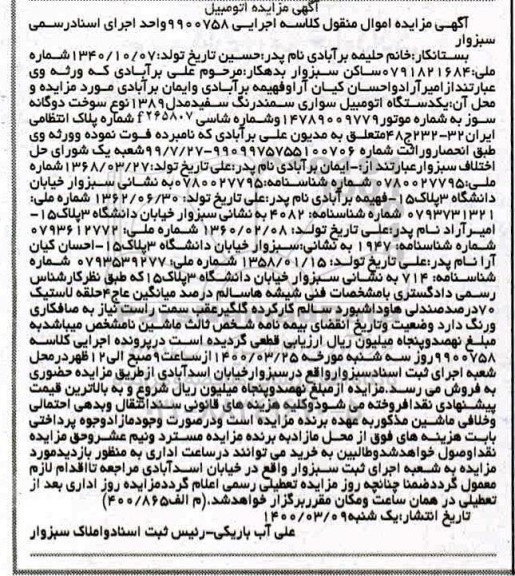 آگهی مزایده اتومبیل
آگهی مزایده اموال منقول کلاسه اجرایی ۹۹۰۰۷۵۸واحد اجرای اسنادرسمی
سبزوار
بستانکار:خانم حلیمه برآبادی نام پدر:حسین تاریخ تولد:۱۳۴۰/۱۰/۰۷شماره
ملی:۰۷۹۱۸۲۱۶۸۴ساکن سبزوار بدهکار:مرحوم علی برآبادی که ورثه وی
عبارتندازامیرآرادواحسان کیان آراوفهیمه برآبادی وایمان برآبادی مورد مزایده و
محل آن:یکدستگاه اتومبیل سواری سمندرنگ سفیدمدل۱۳۸۹نوع سوخت دوگانه
سوز به شماره موتور۱۴۷۸۹۰۰۹۷۷۹وشماره شاسی ۴۲۶۵۸۰۷ شماره پلاک انتظامی
ایران۳۲-۲۳۲ج۴۸متعلق به مدیون علی برآبادی که نامبرده فوت نموده وورثه وی
طبق انحصاروراثت شماره ۹۹۰۹۹۷۵۷۵۵۱۰۰۷۰۶-۹۹/۷/۲۷شعبه یک شورای حل
اختلاف سبزوارعبارتنداز:-ایمان برآبادی نام پدر:علی تاریخ تولد:۱۳۶۸/۰۳/۲۷شماره
ملی:۰۷۸۰۰۲۷۷۹۵ شماره شناسنامه:۰۷۸۰۰۲۷۷۹۵به نشانی سبزوار خیابان
دانشگاه ۳پلاک۱۵-فهیمه برآبادی نام پدر:علی تاریخ تولد: ۱۳۶۲/۰۶/۳۰ شماره ملی:
۰۷۹۳۷۳۱۳۲۱ شماره شناسنامه: ۴۰۸۲ به نشانی سبزوار خیابان دانشگاه ۳پلاک۱۵-
امیرآراد نام پدر:علی تاریخ تولد: ۱۳۶۰/۰۲/۰۸ شماره ملی: ۰۷۹۳۶۱۲۷۷۲
شماره شناسنامه: ۱۹۴۷ به نشانی:سبزوار خیابان دانشگاه ۳پلاک۱۵-احسان کیان
آرا نام پدر:علی تاریخ تولد: ۱۳۵۸/۰۱/۱۵ شماره ملی: ۰۷۹۳۵۳۹۲۷۷ شماره
شناسنامه: ۷۱۴ به نشانی سبزوار خیابان دانشگاه ۳پلاک۱۵که طبق نظرکارشناس
رسمی دادگستری بامشخصات فنی شیشه هاسالم درصد میانگین عاج۴حلقه لاستیک
۷۰درصدصندلی هاوداشبورد سالم کارکرده گلگیرعقب سمت راست نیاز به صافکاری
ورنگ دارد وضعیت وتاریخ انقضای بیمه نامه شخص ثالث ماشین نامشخص میباشدبه
مبلغ نهصدوپنجاه میلیون ریال ارزیابی قطعی گردیده است درپرونده اجرایی کلاسه
۹۹۰۰۷۵۸روز سه شنبه مورخه ۱۴۰۰/۰۳/۲۵ ازساعت۹صبح الی۱۲ظهردرمحل
شعبه اجرای ثبت اسنادسبزوارواقع درسبزوارخیابان اسدآبادی ازطریق مزایده حضوری
به فروش می رسد.مزایده ازمبلغ نهصدوپنجاه میلیون ریال شروع و به بالاترین قیمت
پیشنهادی نقدافروخته می شودوکلیه هزینه های قانونی سندانتقال وبدهی احتمالی
وخلافی ماشین مذکوربه عهده برنده مزایده است ودرصورت وجودمازادوجوه پرداختی
بابت هزینه های فوق از محل مازادبه برنده مزایده مسترد ونیم عشروحق مزایده
نقداوصول خواهدشدوطالبین به خرید می توانند درساعت اداری به منظور بازدیدمورد
مزایده به شعبه اجرای ثبت سبزوار واقع در خیابان اسدآبادی مراجعه تااقدام لازم
معمول گرددضمنا چنانچه روز مزایده تعطیلی رسمی اعلام گرددمزایده روز اداری بعد از
تعطیلی در همان ساعت ومکان مقرربرگزار خواهدشد.(م الف۴۰۰/۸۶۵)
تاریخ انتشار:یک شنبه۱۴۰۰/۰۳/۰۹
علی آب باریکی-رئیس ثبت اسنادواملاک سبزوار